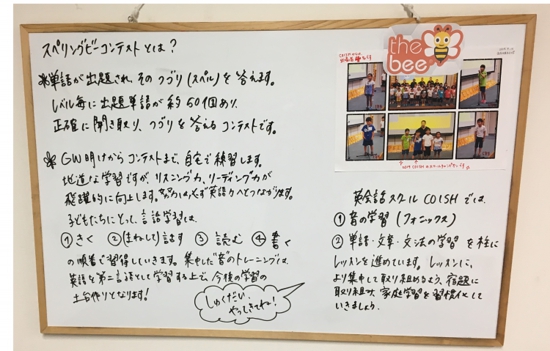 スペリングビーコンテストとは？
※単語が出題され、そのつづり(スペル)を答えます。
レベル毎に出題単語が約50個あり、
正確に聞き取り、つづりを答えるコンテストです。
※GW明けからコンテストまで、自宅で練習します。
地道な学習ですが、リスニング力、リーディング力が
飛躍的に向上します。努力は必ず英語力へとつながります。
子どもたちにとって、言語学習は、
①きく ②(まねして)話す ③読む ④書く
の順番で習得していきます。集中した"音"のトレーニングは、
英語を第二言語として学習する上で、今後の学習の
土台作りとなります。
しゅくだい、
やってきてね！
the
bee
英会話スクール COISHでは、
①音の学習(フォニックス)
②単語・文章・文法の学習を柱に
レッスンを進めています。レッスンに、
より集中して取り組めるよう、宿題に
取り組み、家庭学習を習慣化して
いきましょう。